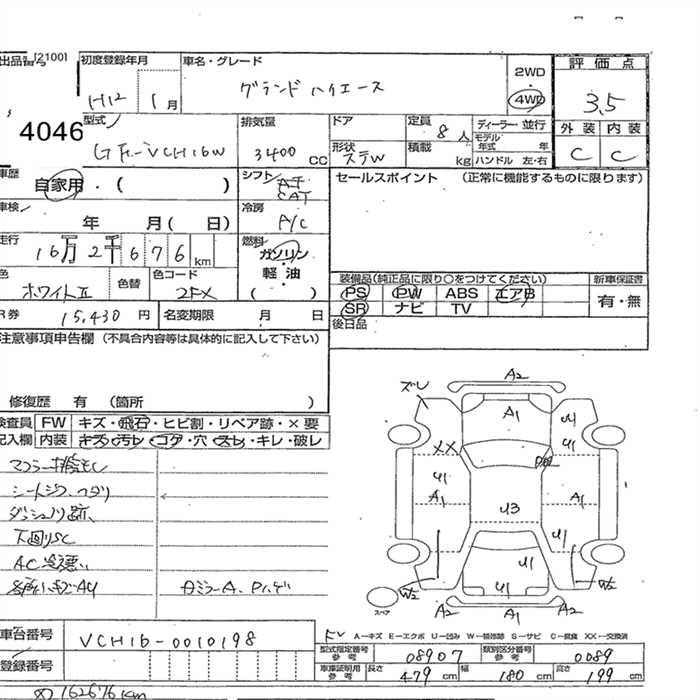 出品番号 [2100]
初度登録年月 車名・グレード 2WD 評価点
H12 1月 グランドハイエース 4WD 3.5
4046
型式 排気量 ドア 定員 8人 ディーラー・並行 外装 内装
モデル年式 年
GF-VCH16W 3400 CC 形状 STW 積載 kg ハンドル 左・右 C C
車歴 自家用・( ) シフト AT CAT セールスポイント (正常に機能するものに限ります)
車検 年 月( 日) 冷房 A/C
走行 16万2千676km 燃料 ガソリン 軽油 ( )
色 ホワイトⅡ 色替 色コード 2FX
装備品(純正品に限り○をつけてください) 新車保証書
PS PW ABS エアB 有・無
SR ナビ TV
R券 15,430円 名変期限 月 日 後日品
注意事項申告欄 (不具合内容等は具体的に記入して下さい)
修復歴 有 (箇所 )
検査員記入欄 FW キズ・飛石・ヒビ割・リペア跡・×要
内装 キズ・汚レ・コゲ・穴・スレ・キレ・破レ
シートシワ、ヘタリ
下回りSC
A2
ズレ A1 U1
XX U1
U1
A1 A1
U3
U1 U1
U1
W2 U1 W2
スペア A2 A1 A2
A－キズ E－エクボ U－凹み W－補修跡 S－サビ C－腐食 XX－交換済
車台番号 VCH16-0010198
登録番号
型式指定番号 参考 08907 類別区分番号 参考 0089
車庫証明用 参考 長さ 479cm 幅 180cm 高さ 199cm
162676km